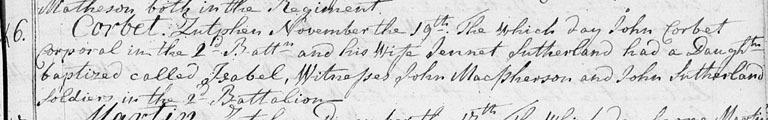 Matheson both in the Regiment.
46. Corbet. Zutphen November the 19th. The which day John Corbet
Corporal in the 2d Battn and his Wife Jennet Sutherland had a Daughtr
baptized called Isabel, Witnesses John Macpherson and John Sutherland
Soldiers in the 2d Battalion
Martin